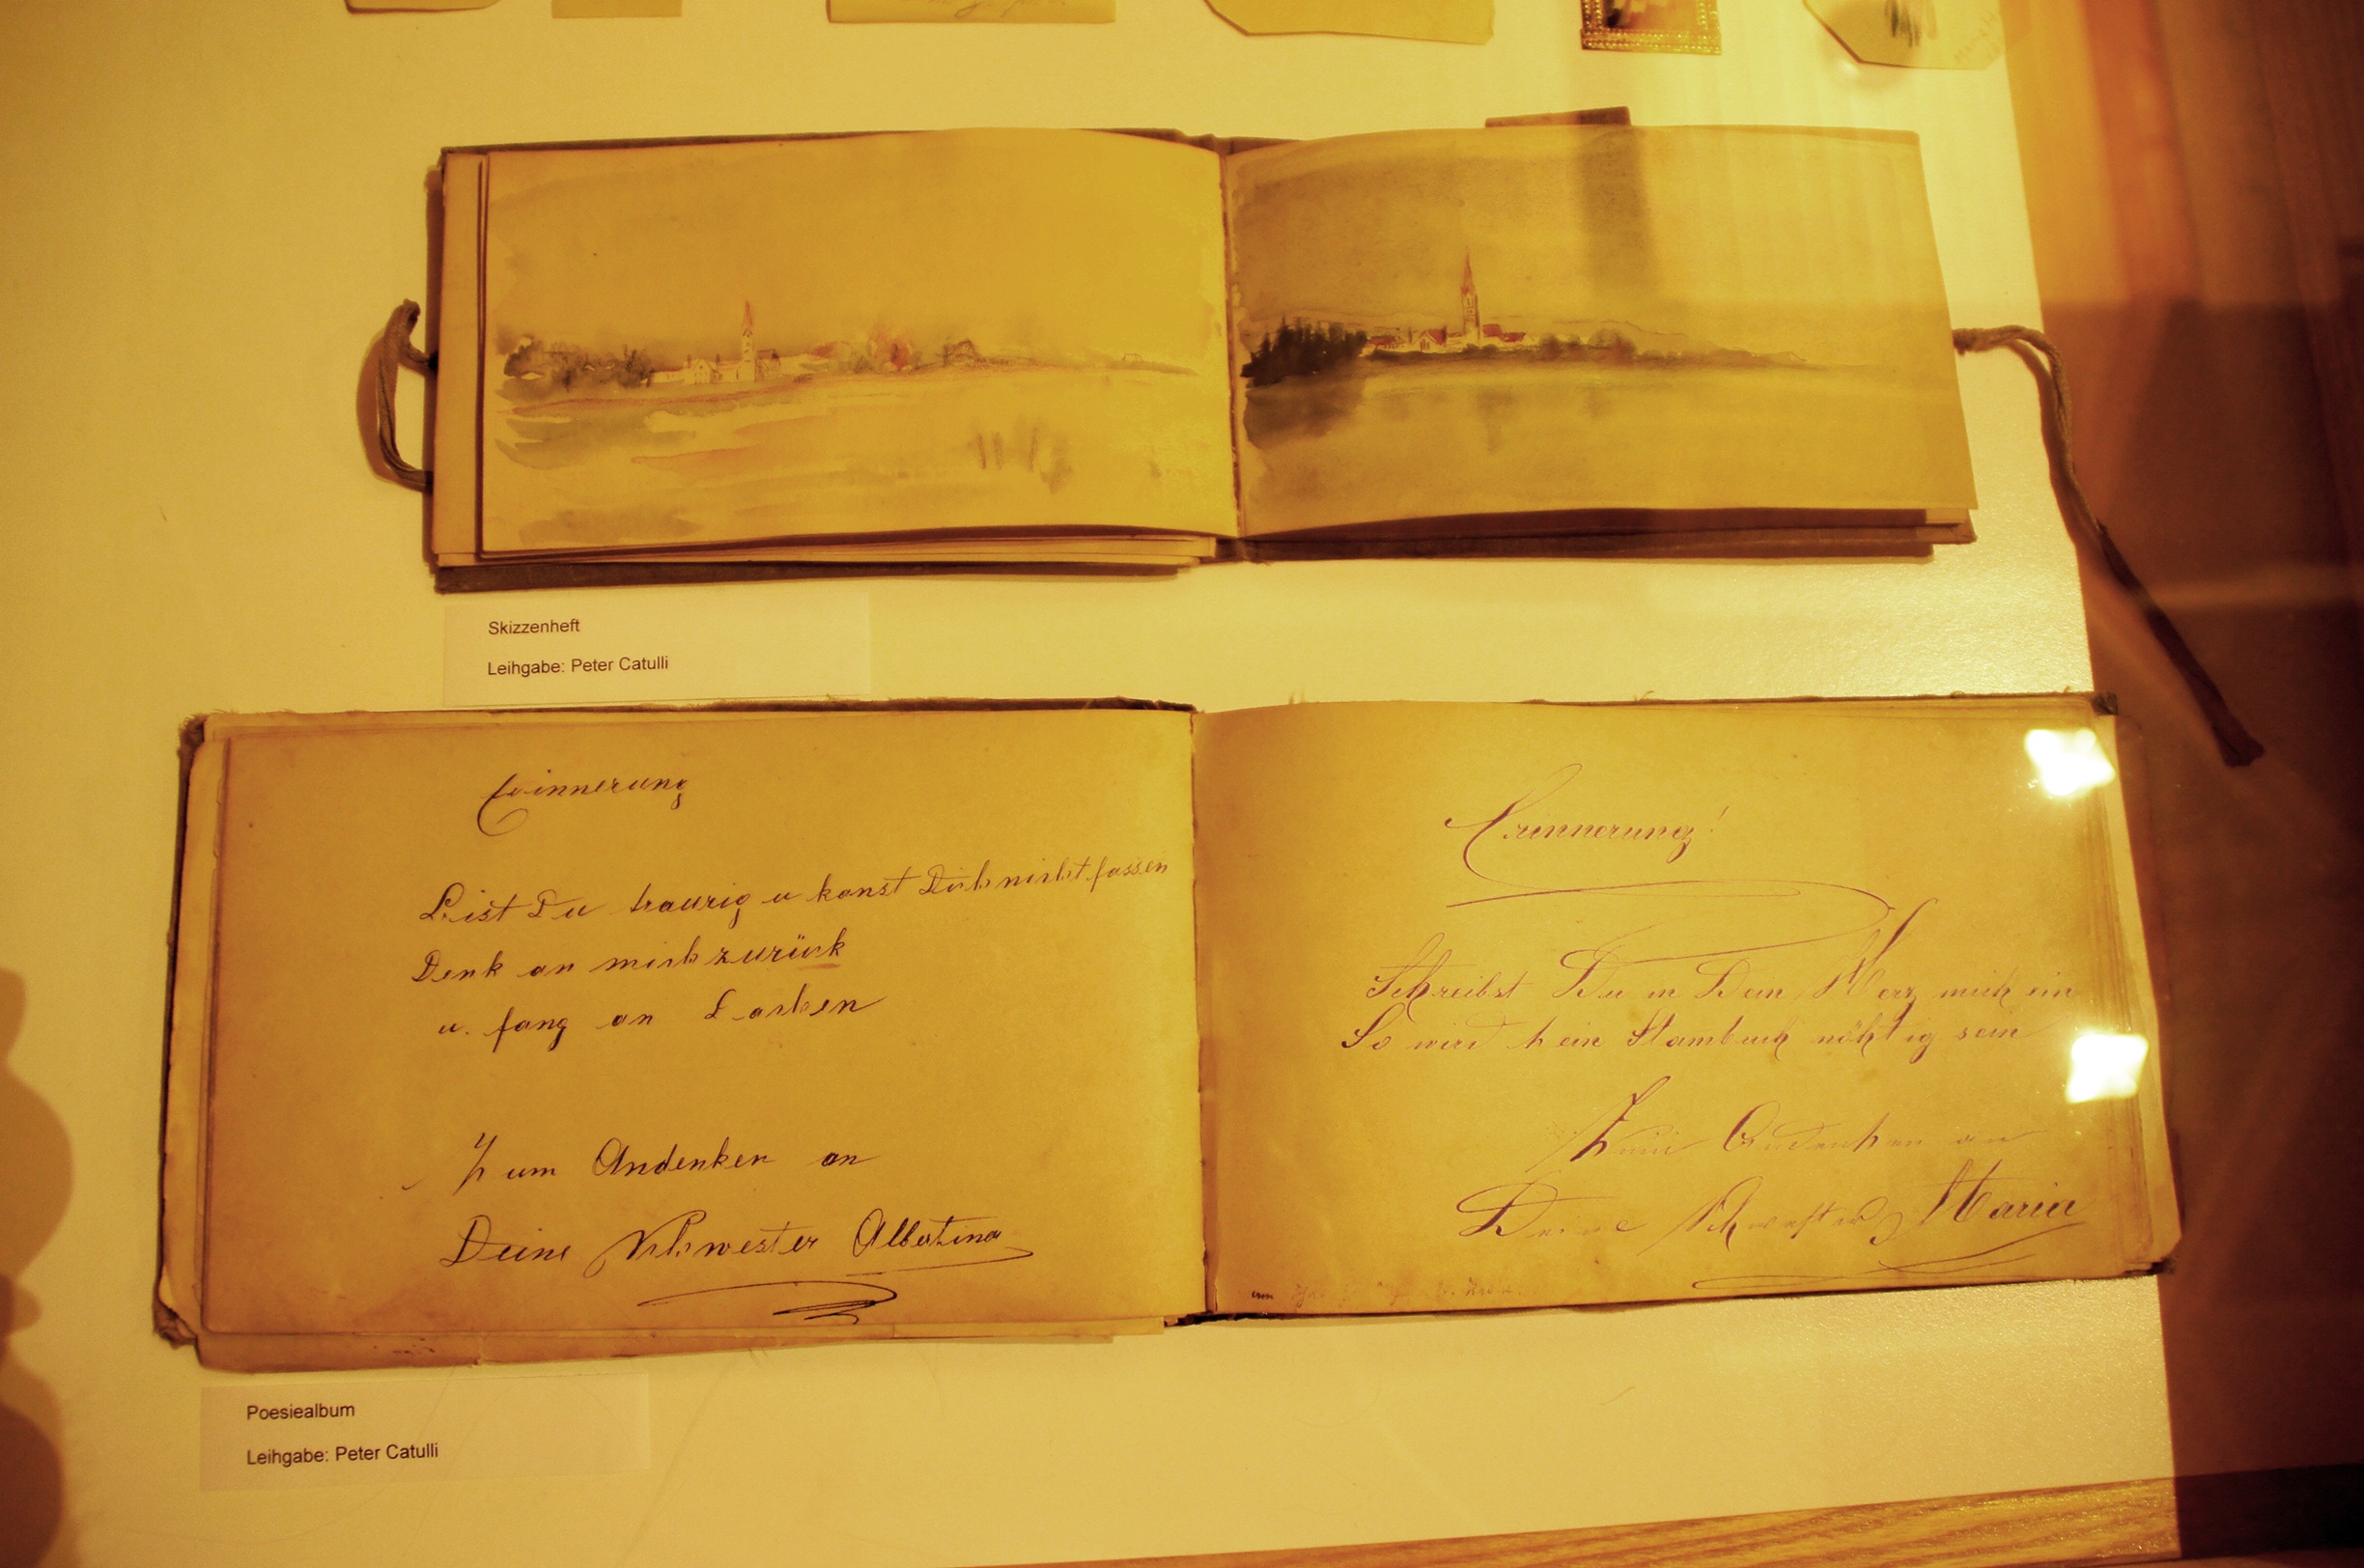 Skizzenheft
Leihgabe: Peter Catulli
Erinnerung
Bist Du traurig u kanst Dich nicht fassen
Denk an mich zurück
u. fang an Lachen
Zum Andenken an
Deine Schwester Albertina
Erinnerung!
Schreibst Du in Dein Herz mich ein
So wird kein Stambuch nöhtig sein
Zum Andenken an
Deine Schwester Maria
Poesiealbum
Leihgabe: Peter Catulli